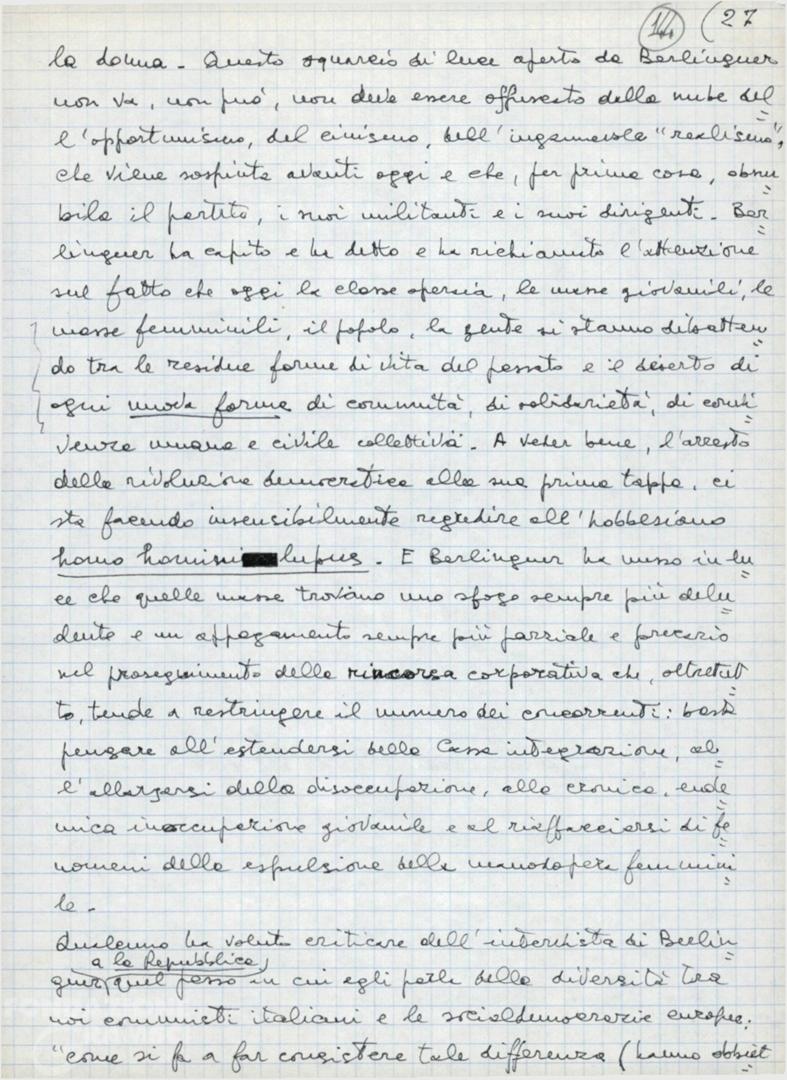 14 (27
la donna - Questo squarcio di luce aperto da Berlinguer
non va, non può, non deve essere offuscato dalla nube del
l'opportunismo, del cinismo, dell'ingannevole "realismo",
che viene sospinta avanti oggi e che, per prima cosa, obnu
bila il partito, i suoi militanti e i suoi dirigenti - Ber
linguer ha capito e ha detto e ha richiamato l'attenzione
sul fatto che oggi la classe operaia, le masse giovanili, le
masse femminili, il popolo, la gente si stanno dibatten
do tra le residue forme di vita del passato e il deserto di
ogni nuova forma di comunità, di solidarietà, di convi
venza umana e civile collettiva - A veder bene, l'arresto
della rivoluzione democratica alla sua prima tappa, ci
sta facendo insensibilmente regredire all'hobbesiano
homo homini lupus - E Berlinguer ha messo in lu
ce che quelle masse trovano uno sfogo sempre più delu
dente e un appagamento sempre più parziale e precario
nel proseguimento della rincorsa corporativa che, oltretut
to, tende a restringere il numero dei concorrenti: basta
pensare all'estendersi della Cassa integrazione, al
l'allargarsi della disoccupazione, alla cronica, ende
mica inoccupazione giovanile e al riaffacciarsi di fe
nomeni della espulsione della manodopera femmini
le -
Qualcuno ha voluto criticare dell'intervista di Berlin
a la Repubblica
guer quel passo in cui egli parla della diversità tra
noi comunisti italiani e le socialdemocrazie europee:
"come si fa a far consistere tale differenza (hanno obbiet